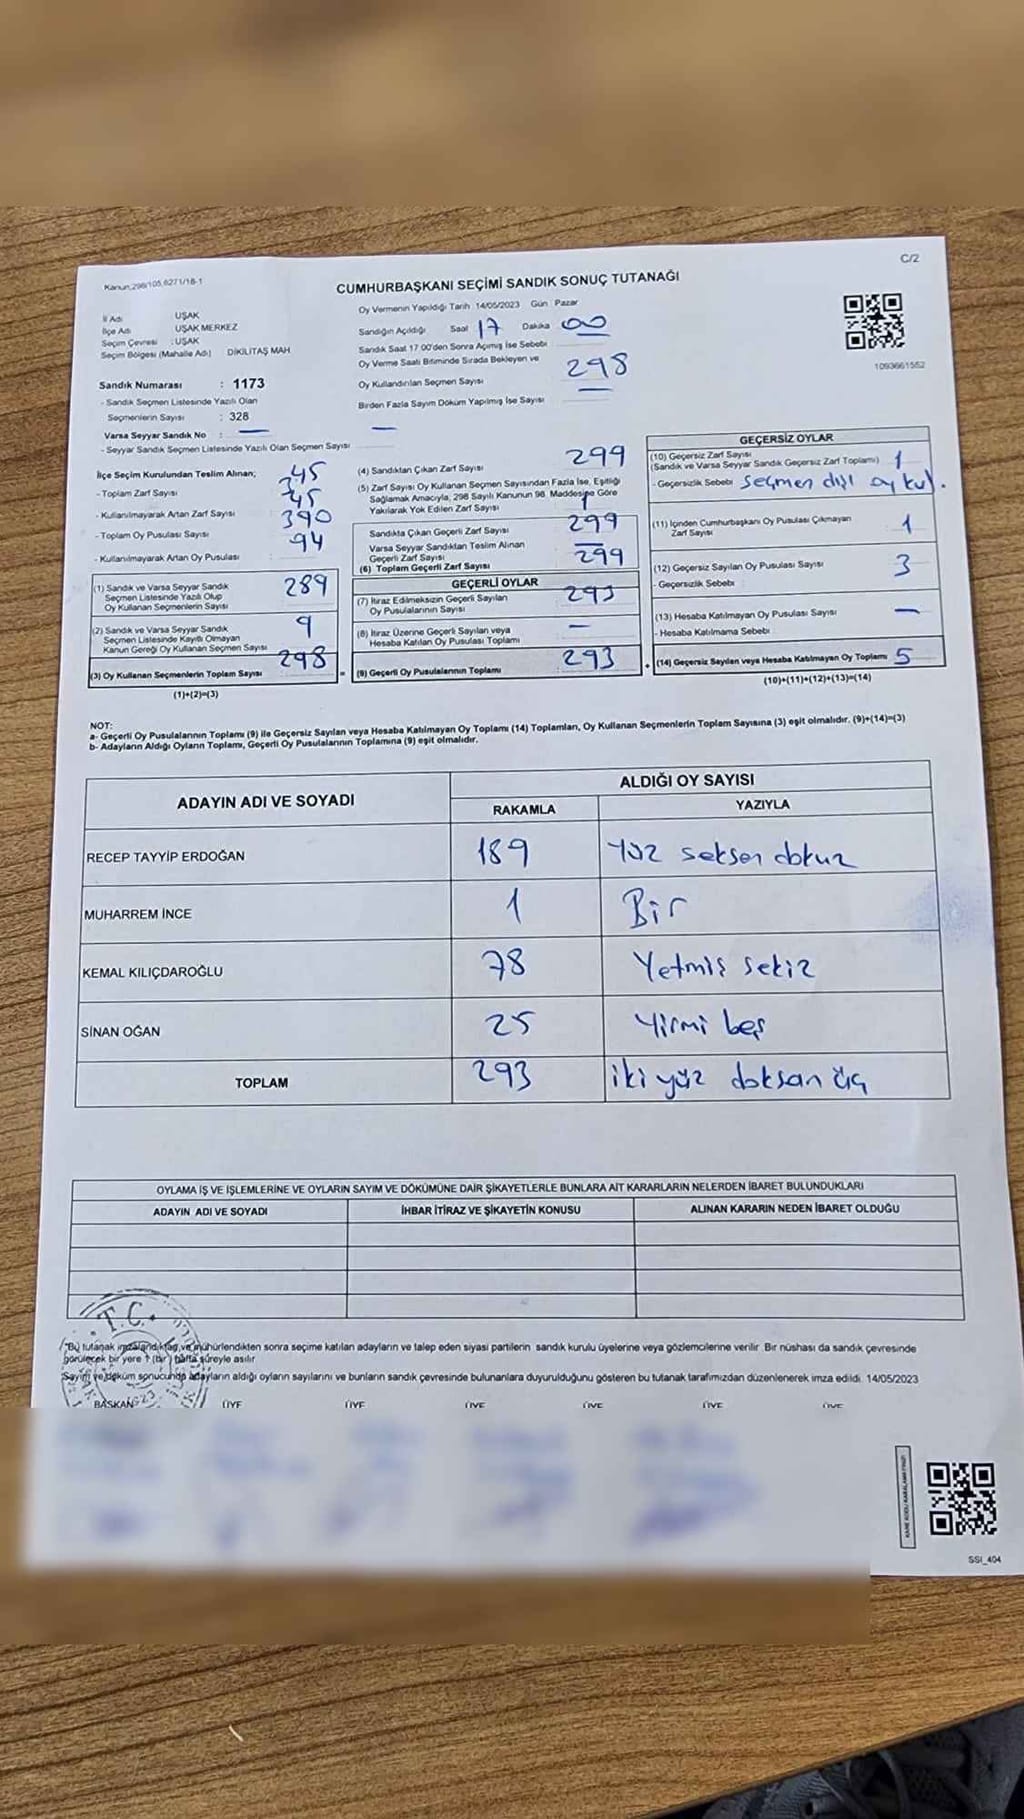 C/2
Kanun,298/105,6271/18-1
CUMHURBAŞKANI SEÇİMİ SANDIK SONUÇ TUTANAĞI
İl Adı UŞAK
İlçe Adı UŞAK MERKEZ
Seçim Çevresi : UŞAK
Seçim Bölgesi (Mahalle Adı) DİKİLİTAŞ MAH
Oy Vermenin Yapıldığı Tarih 14/05/2023 Gün Pazar
Sandığın Açıldığı Saat 17 Dakika 00
Sandık Saat 17 00'den Sonra Açımış İse Sebebi
Oy Verme Saati Bitiminde Sırada Bekleyen ve
Oy Kullandırılan Seçmen Sayısı 298
Birden Fazla Sayım Döküm Yapılmış İse Sayısı —
1093661552
Sandık Numarası : 1173
- Sandık Seçmen Listesinde Yazılı Olan
Seçmenlerin Sayısı : 328
Varsa Seyyar Sandık No : —
- Seyyar Sandık Seçmen Listesinde Yazılı Olan Seçmen Sayısı —
İlçe Seçim Kurulundan Teslim Alınan;
- Toplam Zarf Sayısı 345
- Kullanılmayarak Artan Zarf Sayısı 45
- Toplam Oy Pusulası Sayısı 390
- Kullanılmayarak Artan Oy Pusulası 94
(1) Sandık ve Varsa Seyyar Sandık
Seçmen Listesinde Yazılı Olup
Oy Kullanan Seçmenlerin Sayısı 289
(2) Sandık ve Varsa Seyyar Sandık
Seçmen Listesinde Kayıtlı Olmayan
Kanun Gereği Oy Kullanan Seçmen Sayısı 9
(3) Oy Kullanan Seçmenlerin Toplam Sayısı 298
(1)+(2)=(3)
(4) Sandıktan Çıkan Zarf Sayısı 299
(5) Zarf Sayısı Oy Kullanan Seçmen Sayısından Fazla İse, Eşitliği
Sağlamak Amacıyla, 298 Sayılı Kanunun 98. Maddesine Göre
Yakılarak Yok Edilen Zarf Sayısı 1
Sandıkta Çıkan Geçerli Zarf Sayısı 299
Varsa Seyyar Sandıktan Teslim Alınan
Geçerli Zarf Sayısı —
(6) Toplam Geçerli Zarf Sayısı 299
GEÇERLİ OYLAR
(7) İtiraz Edilmeksizin Geçerli Sayılan
Oy Pusulalarının Sayısı 293
(8) İtiraz Üzerine Geçerli Sayılan veya
Hesaba Katılan Oy Pusulası Toplamı —
= (9) Geçerli Oy Pusulalarının Toplamı 293
GEÇERSİZ OYLAR
(10) Geçersiz Zarf Sayısı
(Sandık ve Varsa Seyyar Sandık Geçersiz Zarf Toplamı) 1
- Geçersizlik Sebebi seçmen dışı oy kul.
(11) İçinden Cumhurbaşkanı Oy Pusulası Çıkmayan
Zarf Sayısı 1
(12) Geçersiz Sayılan Oy Pusulası Sayısı 3
- Geçersizlik Sebebi
(13) Hesaba Katılmayan Oy Pusulası Sayısı —
- Hesaba Katılmama Sebebi
+ (14) Geçersiz Sayılan veya Hesaba Katılmayan Oy Toplamı 5
(10)+(11)+(12)+(13)=(14)
NOT:
a- Geçerli Oy Pusulalarının Toplamı (9) ile Geçersiz Sayılan veya Hesaba Katılmayan Oy Toplamı (14) Toplamları, Oy Kullanan Seçmenlerin Toplam Sayısına (3) eşit olmalıdır. (9)+(14)=(3)
b- Adayların Aldığı Oyların Toplamı, Geçerli Oy Pusulalarının Toplamına (9) eşit olmalıdır.
ADAYIN ADI VE SOYADI ALDIĞI OY SAYISI
RAKAMLA YAZIYLA
RECEP TAYYİP ERDOĞAN 189 Yüz seksen dokuz
MUHARREM İNCE 1 Bir
KEMAL KILIÇDAROĞLU 78 Yetmiş sekiz
SİNAN OĞAN 25 Yirmi beş
TOPLAM 293 iki yüz doksan üç
OYLAMA İŞ VE İŞLEMLERİNE VE OYLARIN SAYIM VE DÖKÜMÜNE DAİR ŞİKAYETLERLE BUNLARA AİT KARARLARIN NELERDEN İBARET BULUNDUKLARI
ADAYIN ADI VE SOYADI İHBAR İTİRAZ VE ŞİKAYETİN KONUSU ALINAN KARARIN NEDEN İBARET OLDUĞU
T.C.
"Bu tutanak imzalandıktan ve mühürlendikten sonra seçime katılan adayların ve talep eden siyasi partilerin sandık kurulu üyelerine veya gözlemcilerine verilir Bir nüshası da sandık çevresinde
görülecek bir yere 1 (bir) hafta süreyle asılır
Sayım ve döküm sonucunda adayların aldığı oyların sayılarını ve bunların sandık çevresinde bulunanlara duyurulduğunu gösteren bu tutanak tarafımızdan düzenlenerek imza edildi. 14/05/2023
BAŞKAN ÜYE ÜYE ÜYE ÜYE ÜYE ÜYE
SSI_404